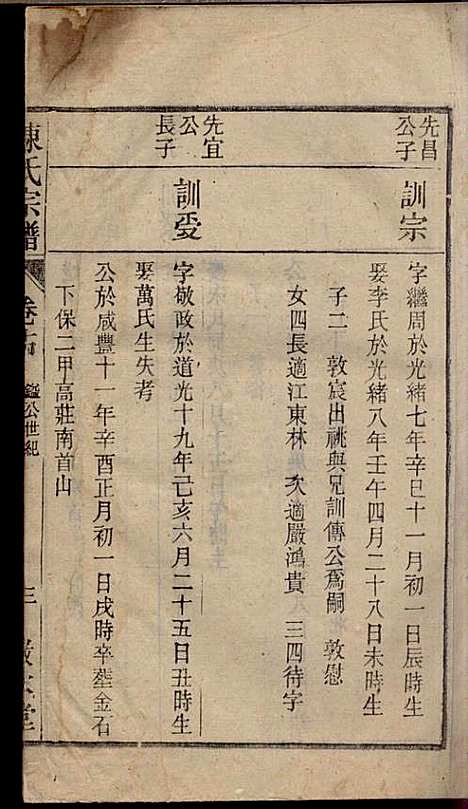 先昌
公子
訓宗
字繼周於光緒七年辛巳十一月初一日辰時生
娶李氏於光緒八年壬午四月二十八日未時生
子二 敦宸出祧與兄訓傳公爲嗣 敦慰
女四長適江東林 次適嚴鴻貴 三四待字
先宜
公
長子
訓受
字敬政於道光十九年己亥六月二十五日丑時生
娶萬氏生失考
公於咸豐十一年辛酉正月初一日戌時卒塟金石
下保二甲高莊南首山
陳氏宗譜
卷
公世紀
三
堂